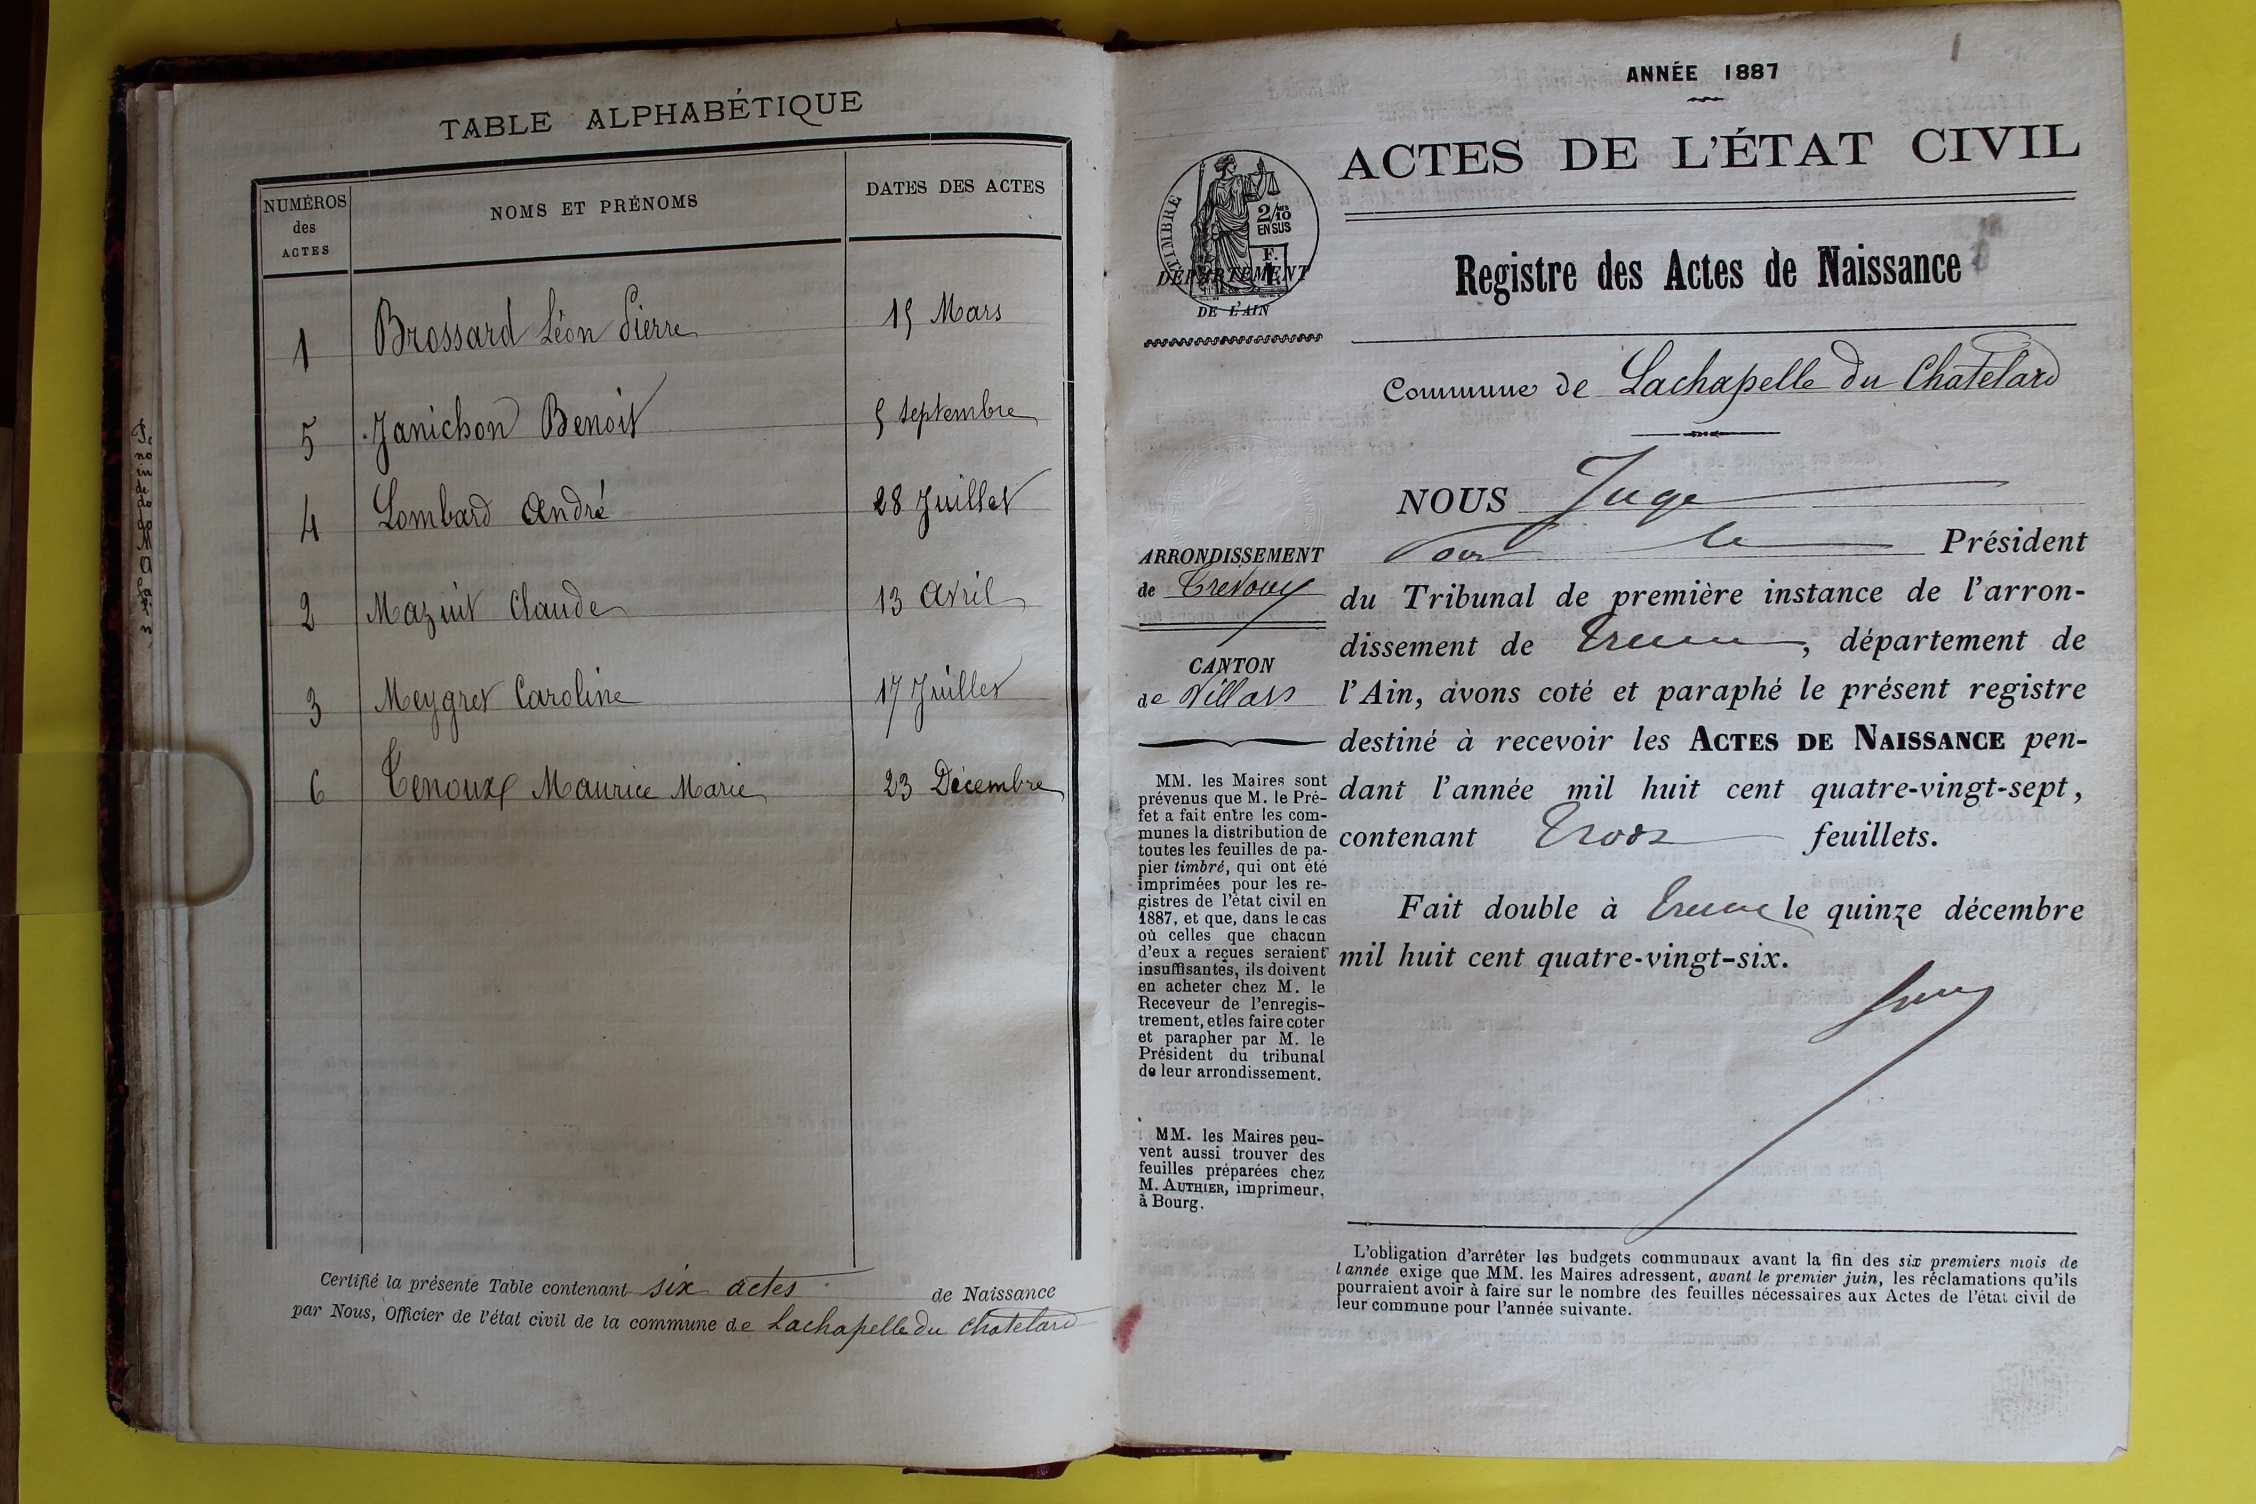 TABLE ALPHABÉTIQUE
NUMÉROS
des
ACTES
NOMS ET PRÉNOMS
DATES DES ACTES
1 Brossard Léon Pierre 15 Mars
5 Janichon Benoit 5 Septembre
4 Lombard André 28 Juillet
2 Mazuit Claude 13 Avril
3 Meygret Caroline 17 Juillet
6 Tenoux Maurice Marie 23 Décembre
Certifié la présente Table contenant six actes de Naissance
par Nous, Officier de l'état civil de la commune de Lachapelle du Chatelard
1
ANNÉE 1887
ACTES DE L'ÉTAT CIVIL
TIMBRE
2/10
EN SUS
F.
DÉPARTEMENT
DE L'AIN
Registre des Actes de Naissance
Commune de Lachapelle du Chatelard
ARRONDISSEMENT
de Trevoux
CANTON
de Villars
MM. les Maires sont
prévenus que M. le Pré-
fet a fait entre les com-
munes la distribution de
toutes les feuilles de pa-
pier timbré, qui ont été
imprimées pour les re-
gistres de l'état civil en
1887, et que, dans le cas
où celles que chacun
d'eux a reçues seraient
insuffisantes, ils doivent
en acheter chez M. le
Receveur de l'enregis-
trement, et les faire coter
et parapher par M. le
Président du tribunal
de leur arrondissement.
MM. les Maires peu-
vent aussi trouver des
feuilles préparées chez
M. AUTHIER, imprimeur,
à Bourg.
NOUS Juge
Pour le Président
du Tribunal de première instance de l'arron-
dissement de Trevoux, département de
l'Ain, avons coté et paraphé le présent registre
destiné à recevoir les ACTES DE NAISSANCE pen-
dant l'année mil huit cent quatre-vingt-sept,
contenant Trois feuillets.
Fait double à Trevoux le quinze décembre
mil huit cent quatre-vingt-six.
L'obligation d'arrêter les budgets communaux avant la fin des six premiers mois de
l'année exige que MM. les Maires adressent, avant le premier juin, les réclamations qu'ils
pourraient avoir à faire sur le nombre des feuilles nécessaires aux Actes de l'état civil de
leur commune pour l'année suivante.